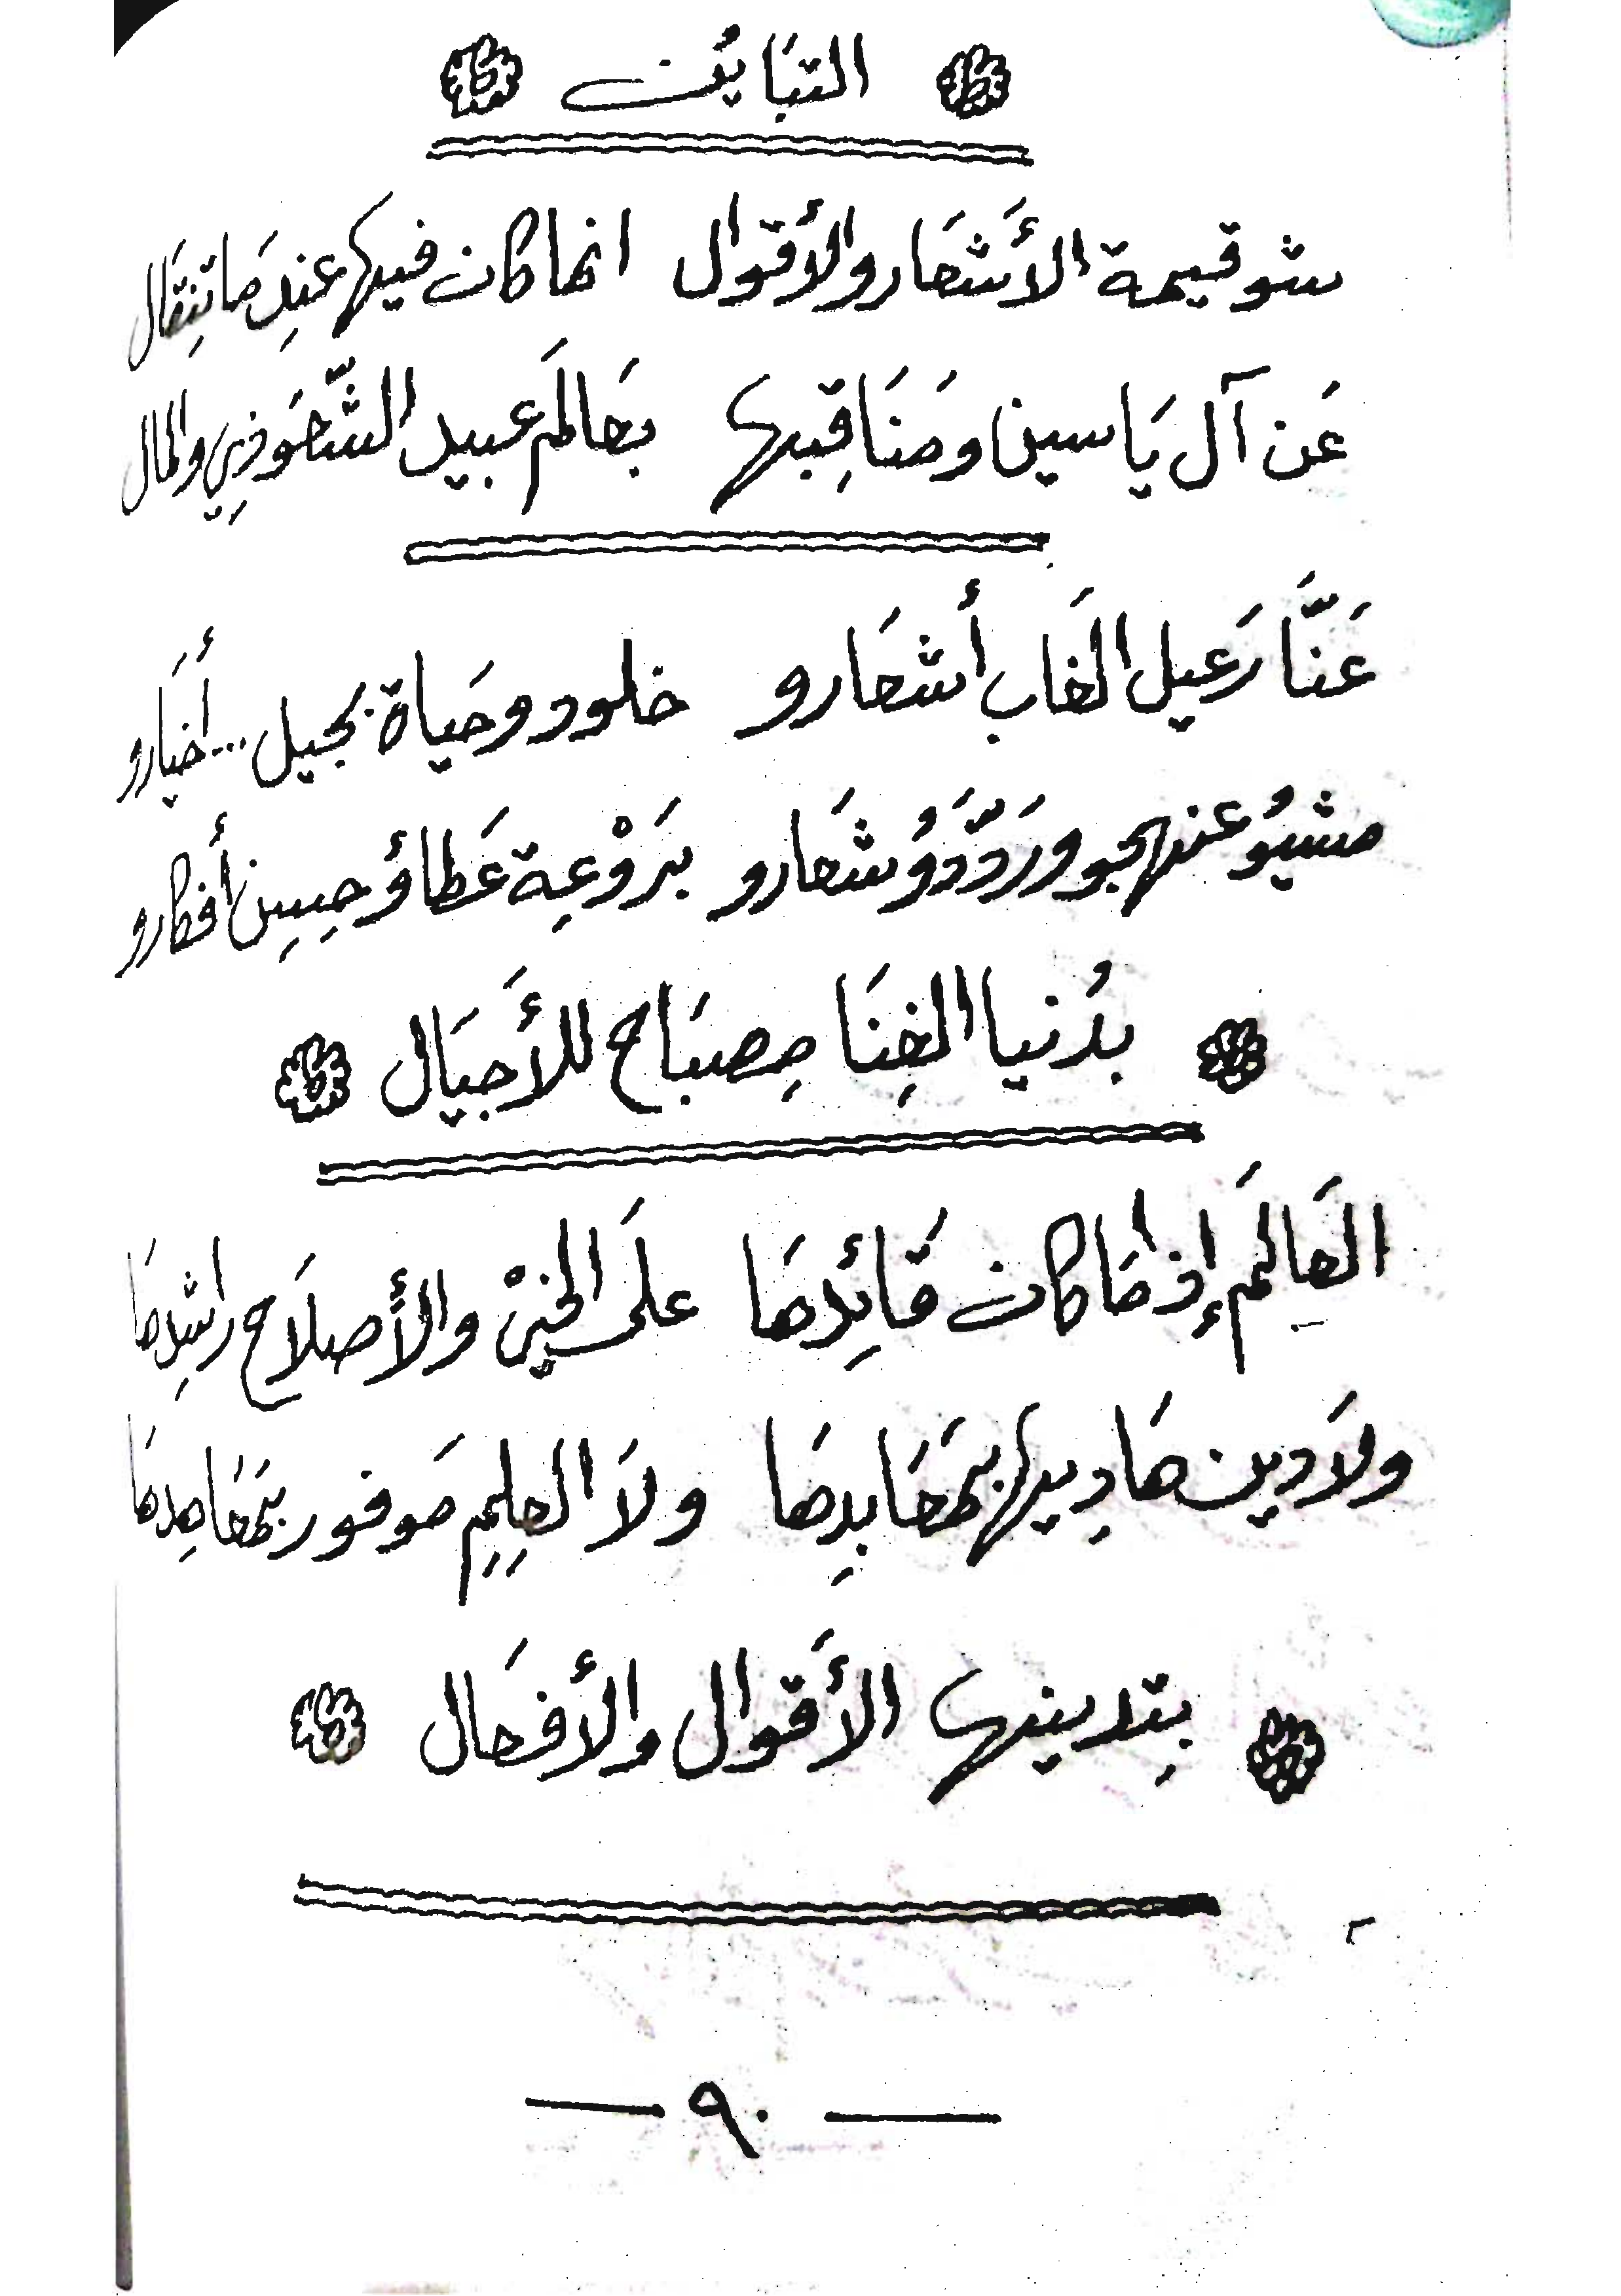 التبَايُن
شو قيمة الأَشعَار والأقوال انما كان فيها عندِ مَا تنِقَال
عَن آل يَاسين ومنَاقِبها بعَالمَ عبيد الشّعَوذِي والمال
عَنَّا رَعيل الغَاب أشعَارو خلود وحيَاة بجيل... أخيَارو
مشيُو عنهجو ورَدَّدوُ شعَارو برَوْعِة عَطاؤ حِبِين أفكارو
بدُنيا الغِنَا مِصبَاح للأَجيَال
العَالمَ إذا مَا كان قَائِدهَا علَى الخيْر والأصلَاح راشِدهَا
ولاَ دين هَادِيها بمَعَابدِهَا ولاَ العِلِم مَوفور بمَعَاهِدهَا
بِتدينها الأَقوال والأفعَال
— ٩٠ —